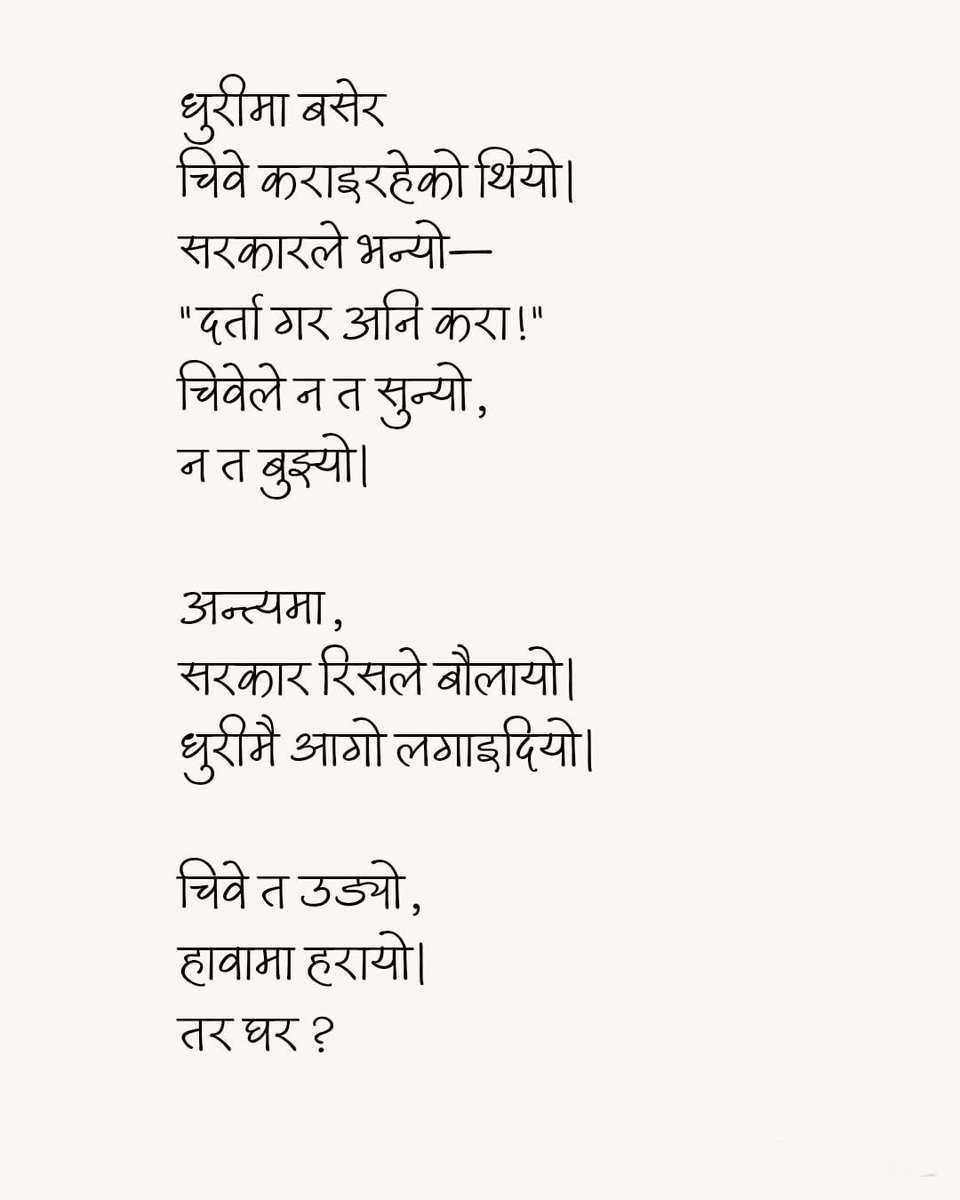 धुरीमा बसेर
चिवे कराइरहेको थियो|
सरकारले भन्यो—
"दर्ता गर अनि करा!"
चिवेले न त सुन्यो,
न त बुझ्यो|
अन्त्यमा,
सरकार रिसले बौलायो|
धुरीमै आगो लगाइदियो|
चिवे त उड्यो,
हावामा हरायो|
तर घर ?